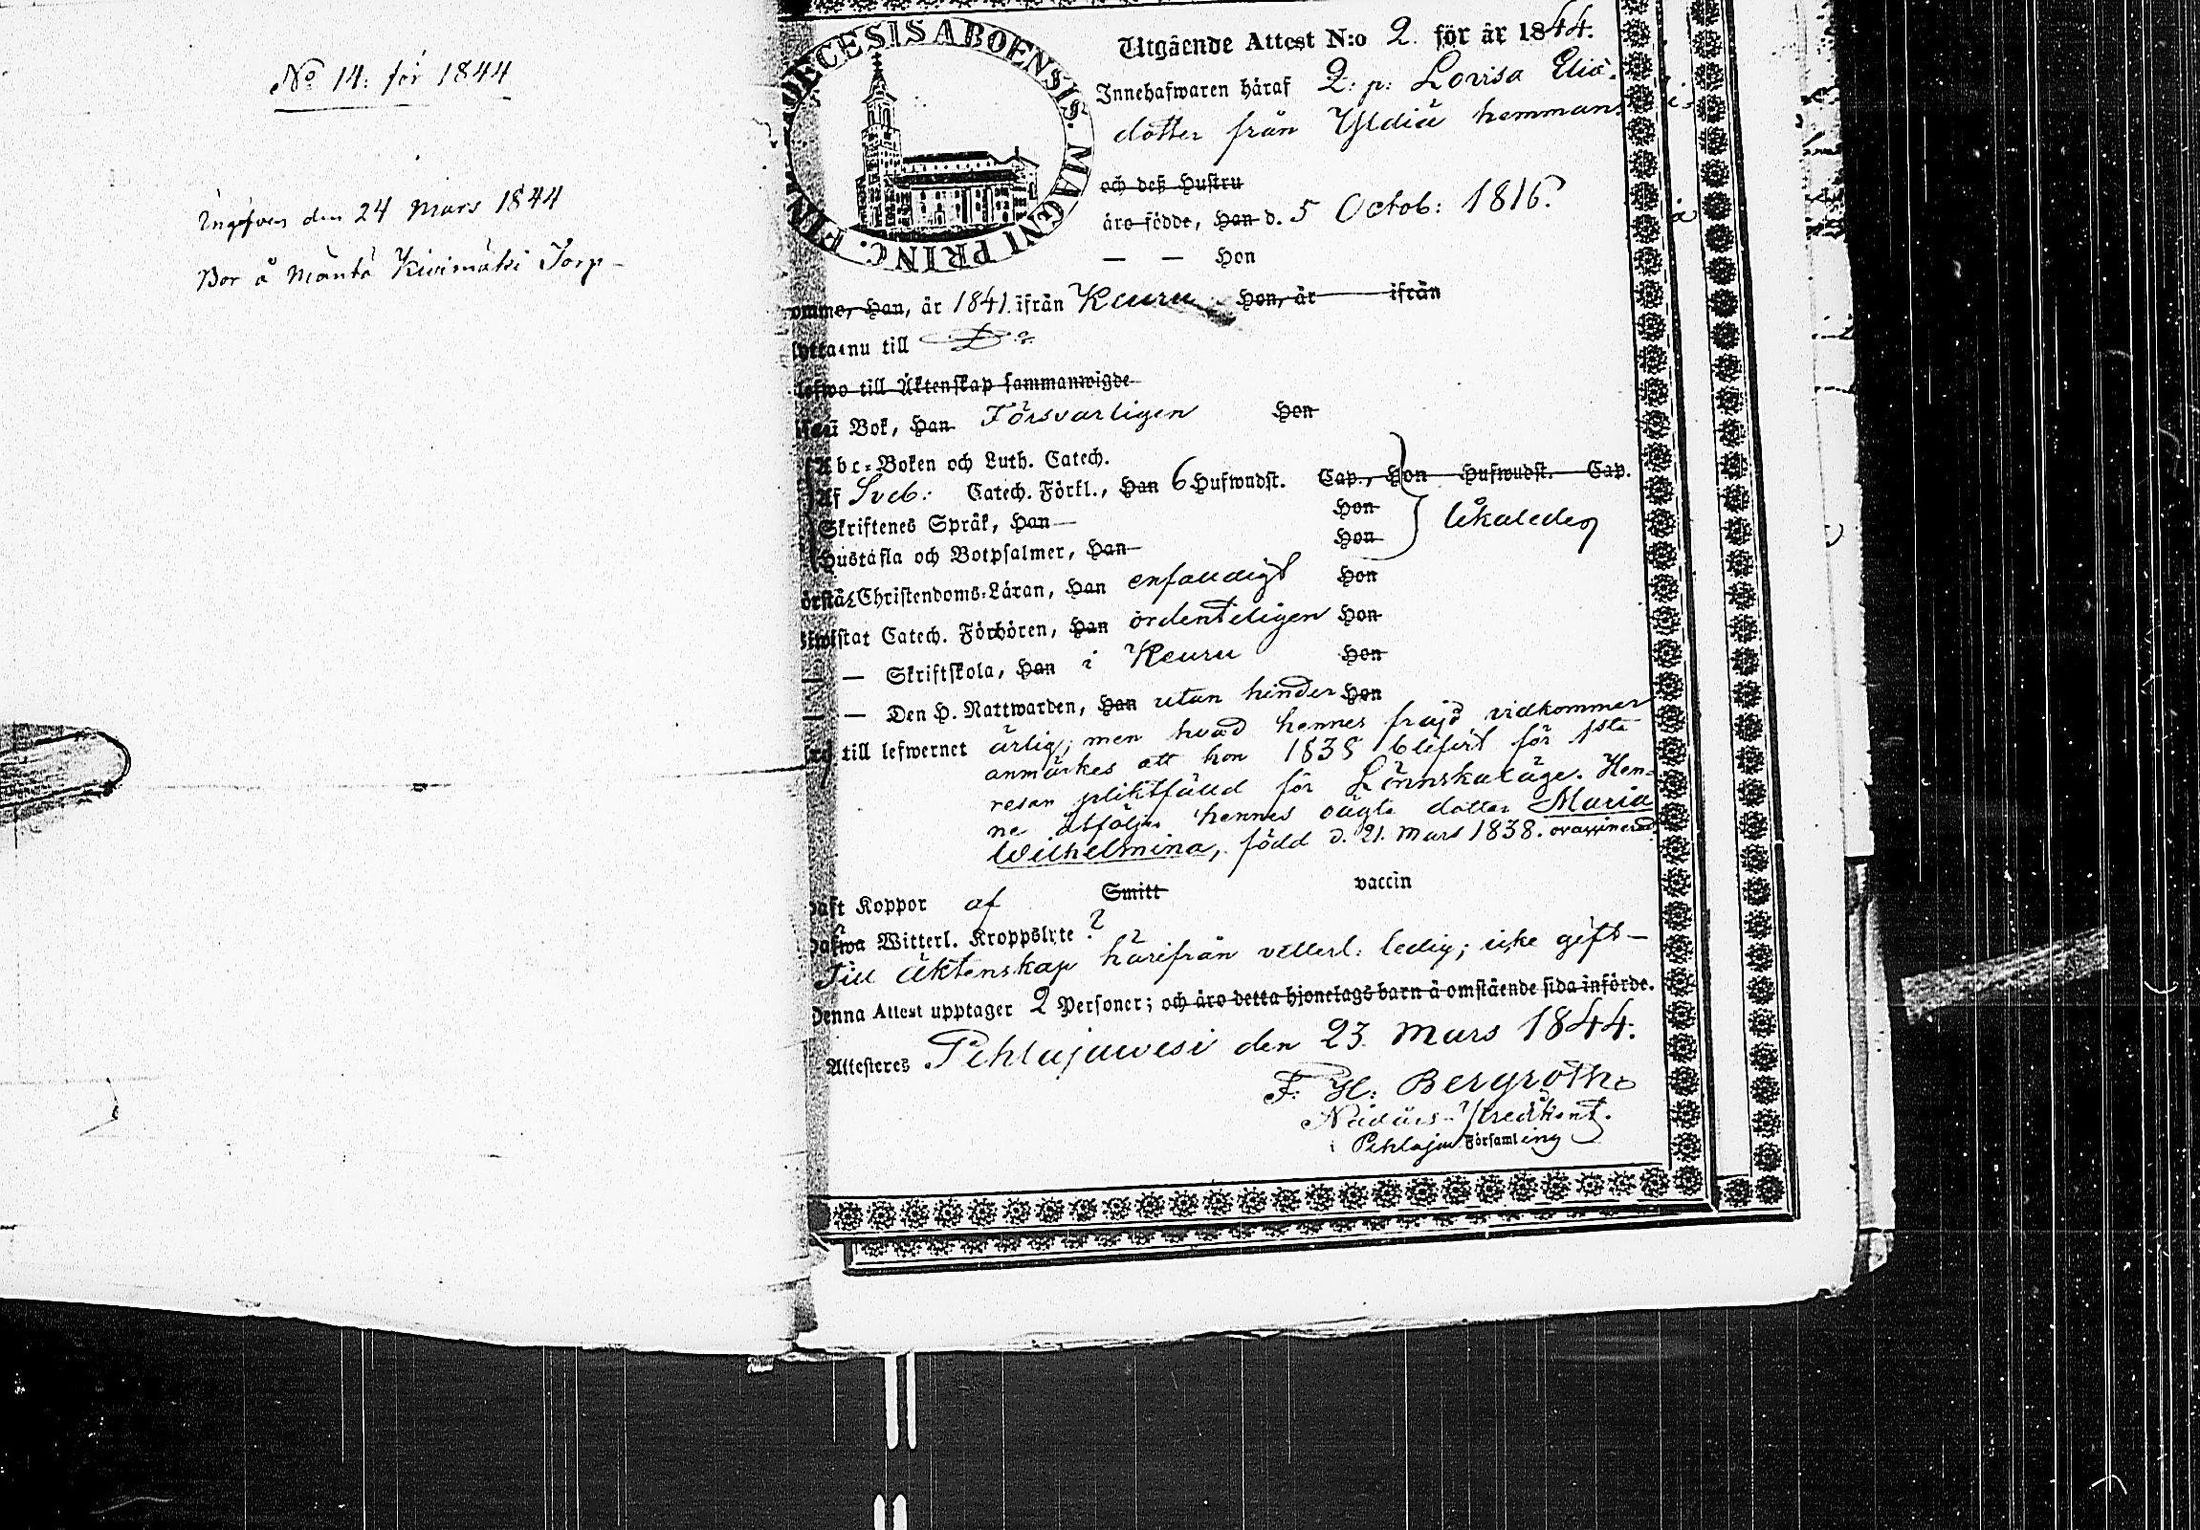 No 14. för 1844
Ingifven den 24 Mars 1844
Bor å Mänttä Kivimäki Torp
DIOECESIS ABOENSIS. MAGNI PRINC. FINL
Utgående Attest N:o 2. för år 1844.
Innehafwaren häraf Q: p: Lovisa Elia-
dotter från Yldiä hemman
och deß Hustru
äro födde, Han d. 5 Octob: 1816.
— — Hon
omme, Han, år 1841 ifrån Keuru Hon, år ifrån
nu till D:o
lefwo till Äktenskap sammanwigde
Bok, Han Försvarligen Hon
Abc-Boken och Luth. Catech.
Af Sveb: Catech. Förkl., Han 6 Hufwudst. Cap., Hon Hufwudst. Cap.
Skriftenes Språk, Han Hon
Hustafla och Botpsalmer, Han Hon
likaledes
örstå Christendoms-Läran, Han enfaldigt Hon
iwistat Catech. Förhören, Han ordenteligen Hon
— — Skriftskola, Han i Keuru Hon
— — Den H. Nattwarden, Han utan hinder Hon
till lefwernet ärlig; men hvad hennes fräjd vidkommer
anmärkes att hon 1838 blifvit för 1sta
resan pliktfälld för Lönnskaläge. Hen-
ne åtföljer hennes oägta dotter Maria
Wilhelmina, född d. 21. Mars 1838. ovaccinerad
haft Koppor af Smitt vaccin
hafwa Witterl. Kroppslyte ?
Till Äktenskap härifrån vetterl. ledig; icke gift-
Denna Attest upptager 2 Personer; och äro detta hjonelags barn å omstående sida införde.
Attesteres Pihlajawesi den 23 Mars 1844.
F. H. Bergroth
Nådårs-Predikant.
i Pihlajaw Församling